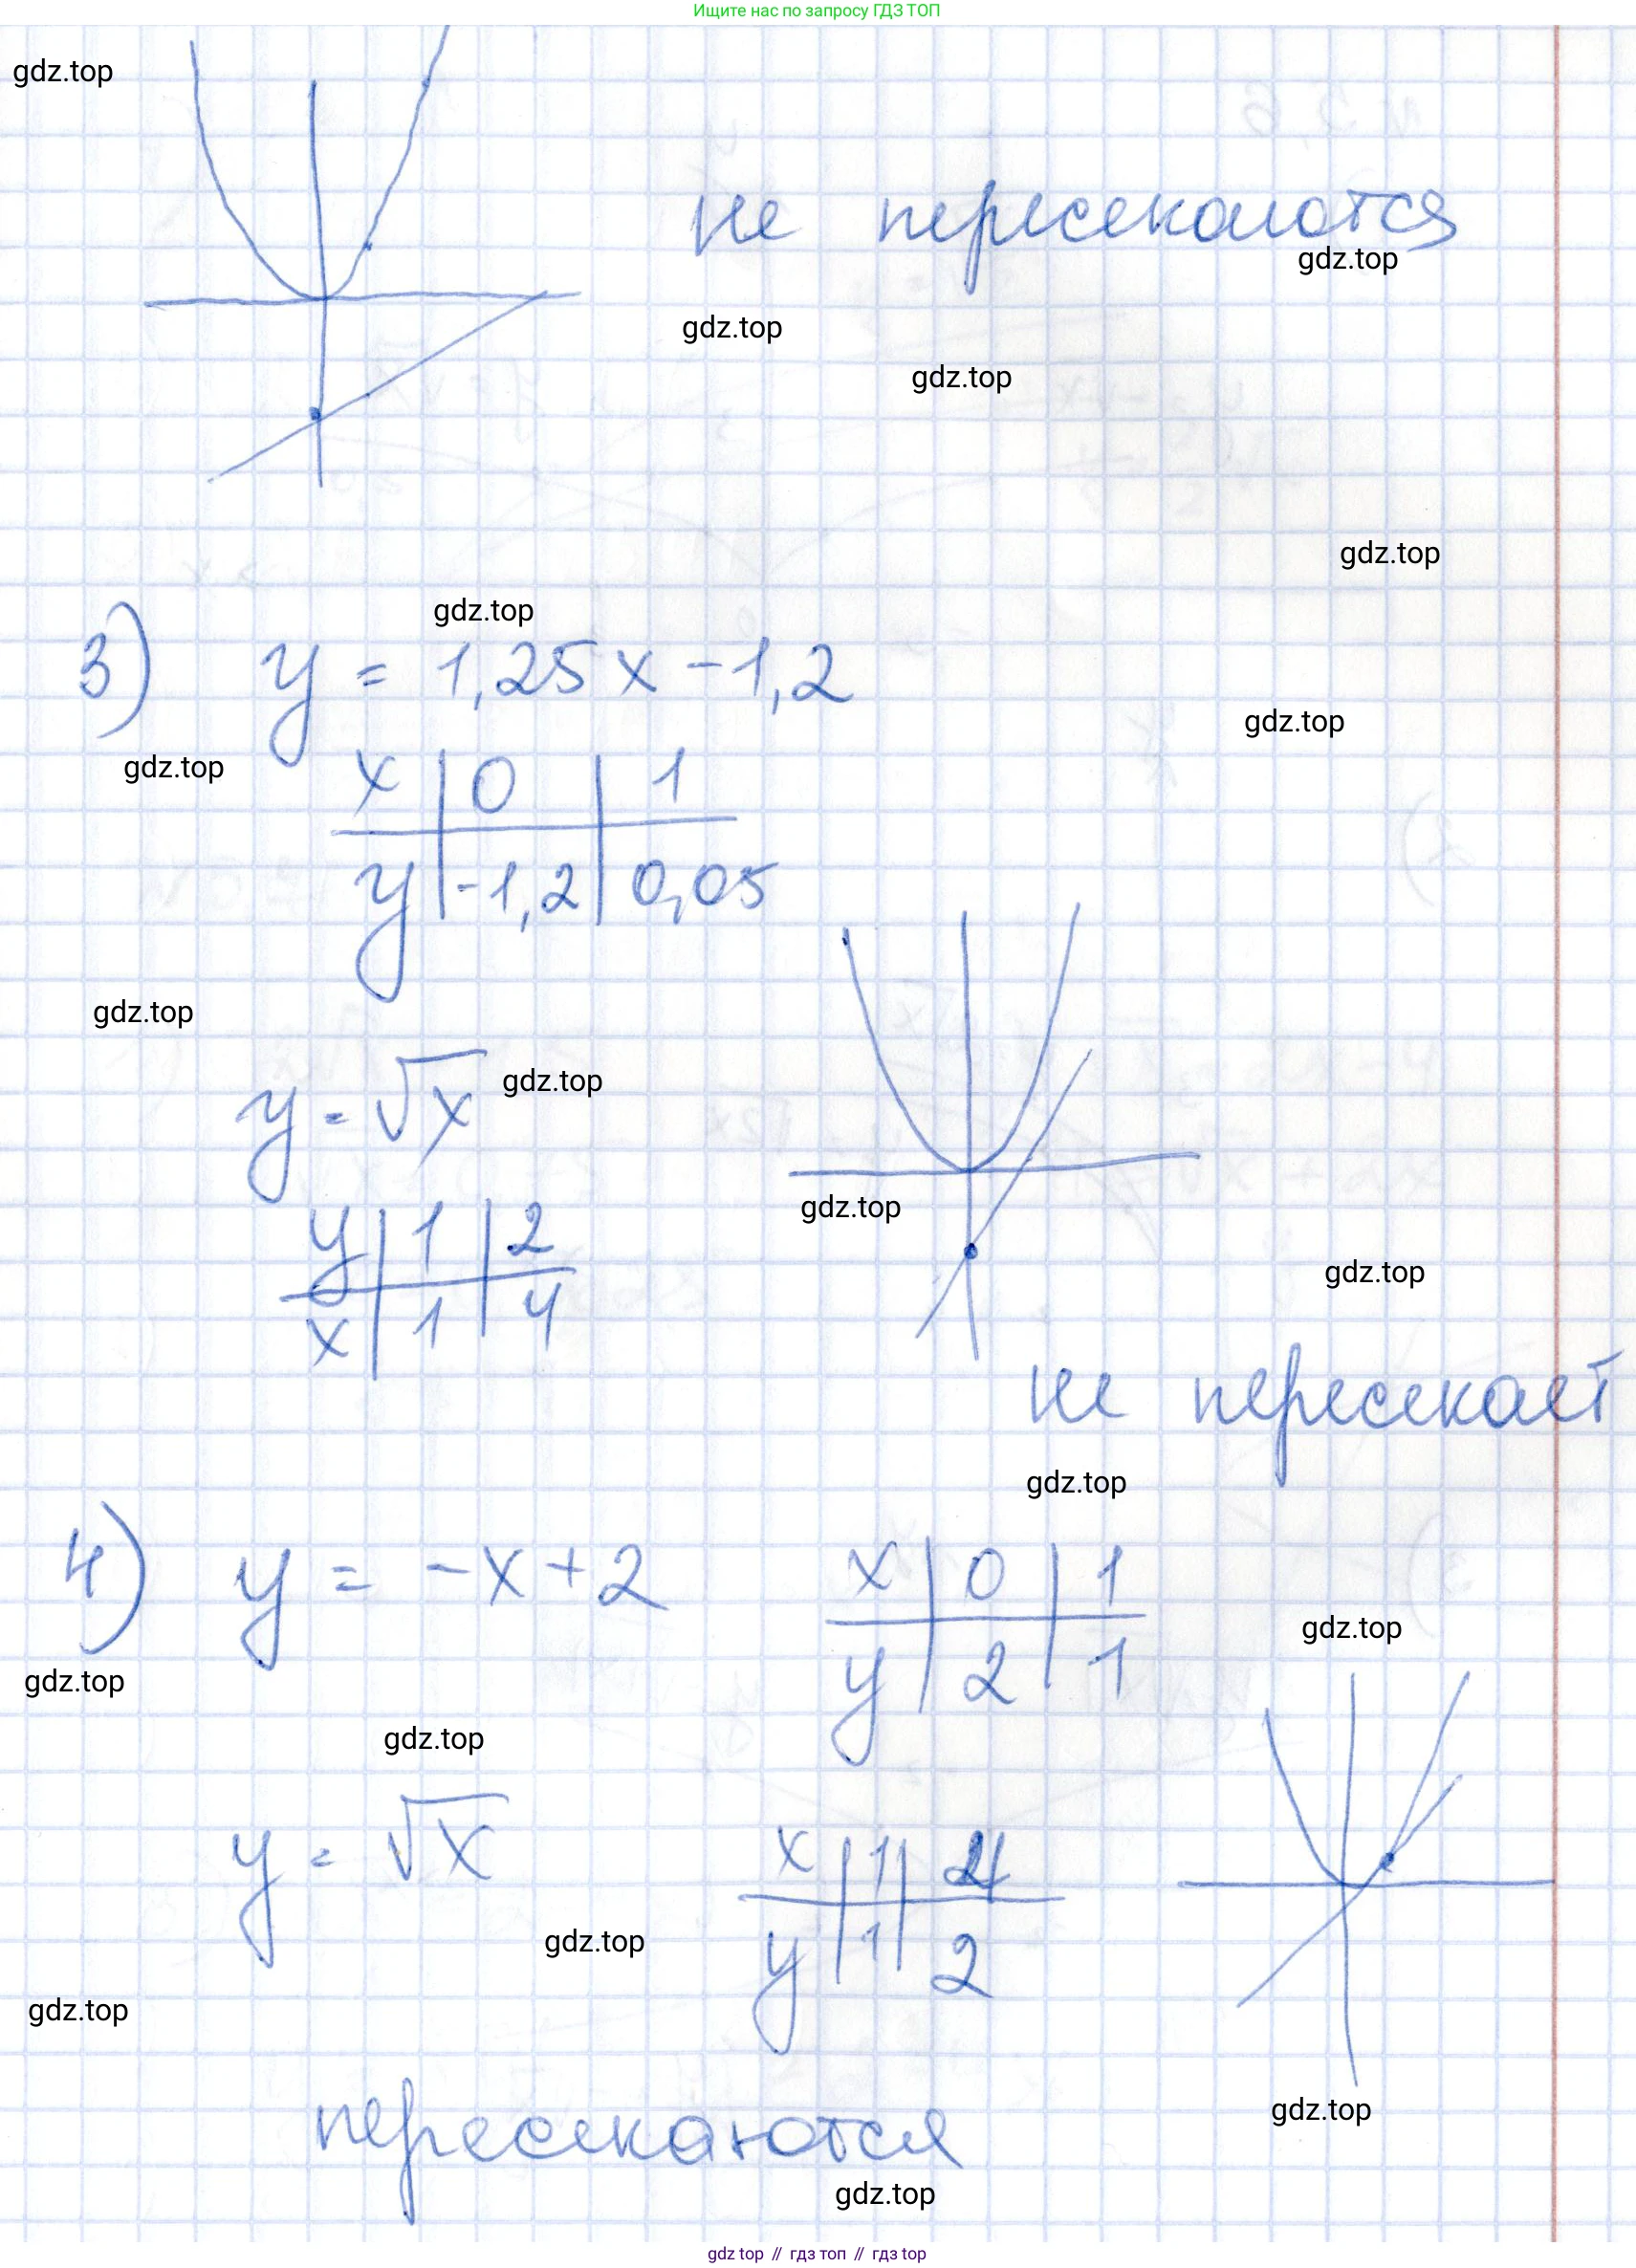 Ищите нас по запросу ГДЗ ТОП
gdz.top
не пересекаются
gdz.top
gdz.top
gdz.top
gdz.top
gdz.top
3) y = 1,25x - 1,2
gdz.top
gdz.top
x | 0 | 1
y | -1,2 | 0,05
gdz.top
y = √x
gdz.top
gdz.top
y | 1 | 2
x | 1 | 4
gdz.top
не пересекает
gdz.top
4) y = -x + 2
x | 0 | 1
y | 2 | 1
gdz.top
gdz.top
gdz.top
y = √x
x | 1 | 4
y | 1 | 2
gdz.top
gdz.top
gdz.top
пересекаются
gdz.top
gdz top // гдз топ // гдз top